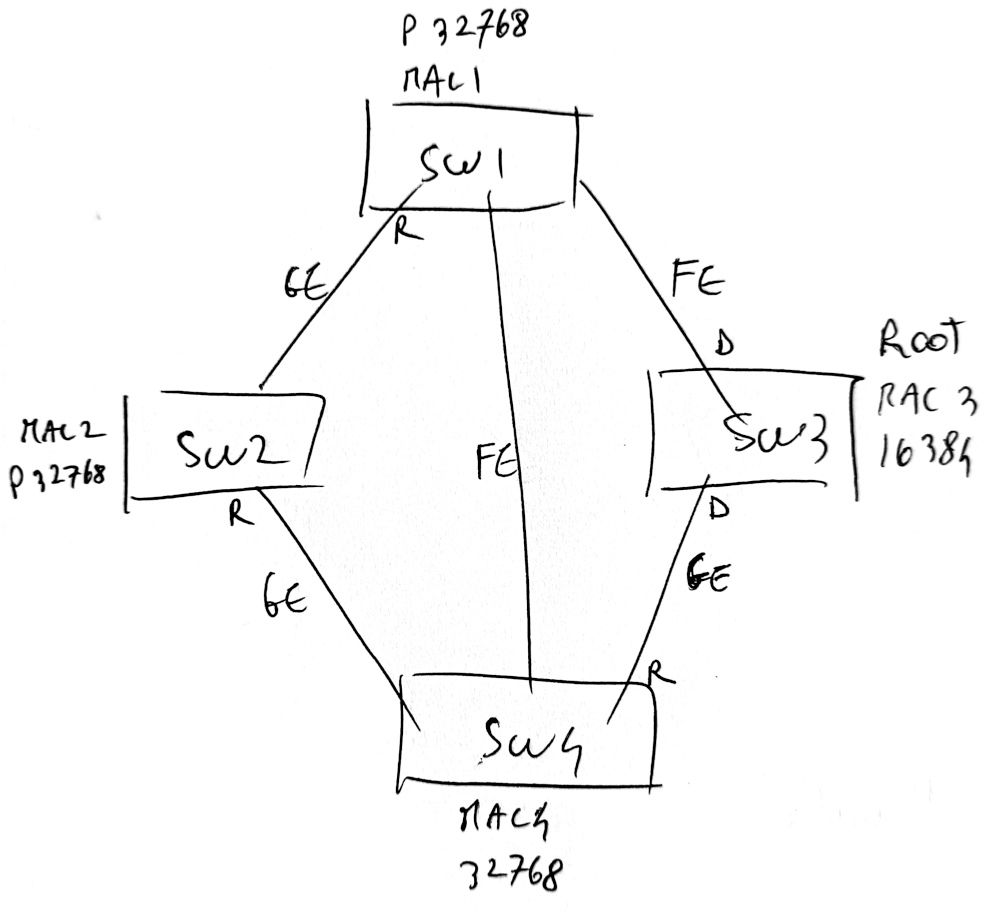 P 32768
MAC1
SW1
R
GE
FE
D
Root
MAC 3
16384
SW3
MAC2
P 32768
SW2
R
FE
D
GE
GE
R
SW4
MAC4
32768